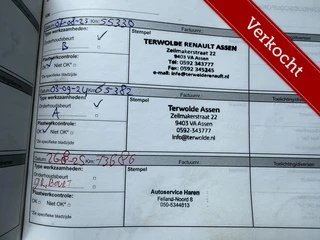 Verkocht
Stempel
Factuurnr.
Datum: 01-08-23 Km: 55330
Type werkzaamheden:
Onderhoudsbeurt
B
Plaatwerkcontrole:
Niet OK*
Zie specifieke bladzijde
TERWOLDE RENAULT ASSEN
Zeilmakerstraat 22
9403 VA Assen
Tel: 0592 343777
Fax: 0592 345245
e-mail: info@terwolderenault.nl
Datum: 03-09-24 Km: 65382
Type werkzaamheden:
Onderhoudsbeurt
A
Plaatwerkcontrole:
OK Niet OK*
Zie specifieke bladzijde
Stempel
Factuurnr.
Terwolde Assen
Zeilmakerstraat 22
9403 VA Assen
0592-343777
info@terwolde.nl
Datum: 26-8-25 Km: 73686
Type werkzaamheden:
Onderhoudsbeurt
gr. Beurt
Plaatwerkcontrole:
OK Niet OK*
Zie specifieke bladzijde
Stempel
Factuurnr.
Toelichting/diversen
Autoservice Haren
Felland-Noord 8
050-5344813